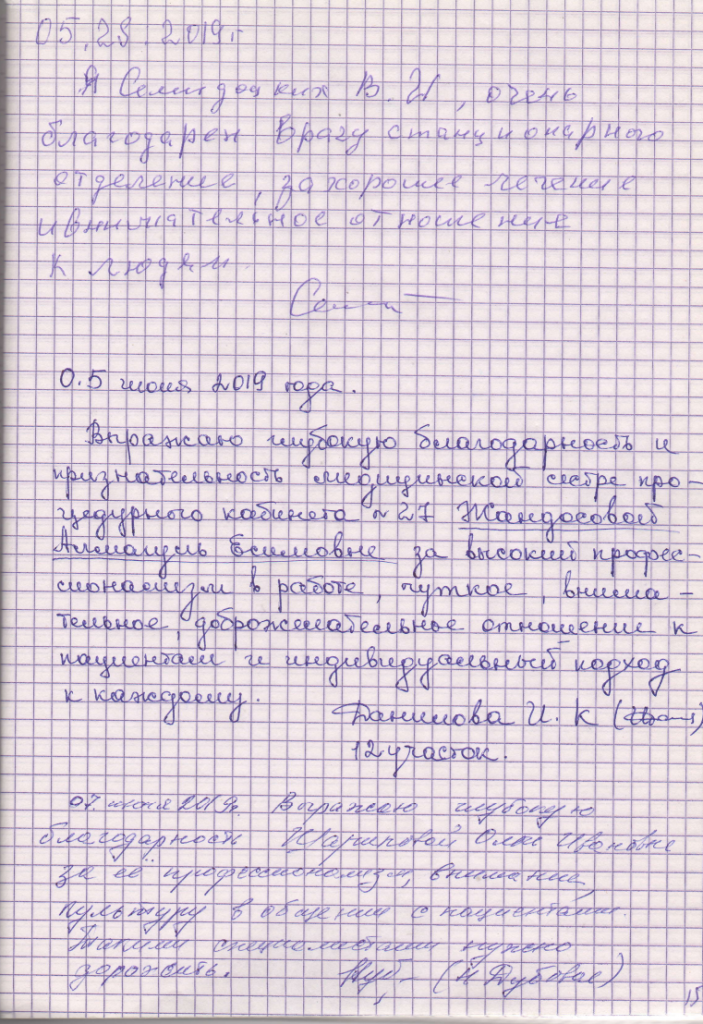 05.28.2019г
Я Семидоцких В.И, очень
благодарен Врачу станционарного
отделение, за хорошее лечение
и внимательное отношение
к людям.
0.5 июня 2019 года.
Выражаю глубокую благодарность и
признательность медицинской сестре про-
цедурного кабинета № 27 Жандосовой
Алмагуль Есимовне за высокий профес-
сионализм в работе, чуткое, внима-
тельное, доброжелательное отношение к
пациентам и индивидуальный подход
к каждому.
Данилова И. К
12 участок.
07. июня 2019г. Выражаю глубокую
благодарность Шариповой Олге Ивановне
за её профессионализм, внимание,
культуру в общении с пациентами.
Такими специалистами нужно
дорожить. (Н Дубовая)
15